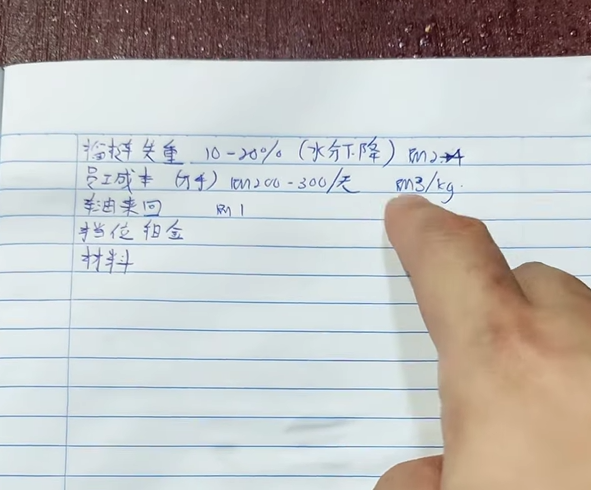 榴梿失重 10-20% (水分下降) RM2-4
员工成本 (开手) RM200-300/天 RM3/kg.
车油来回 RM1
档位租金
材料